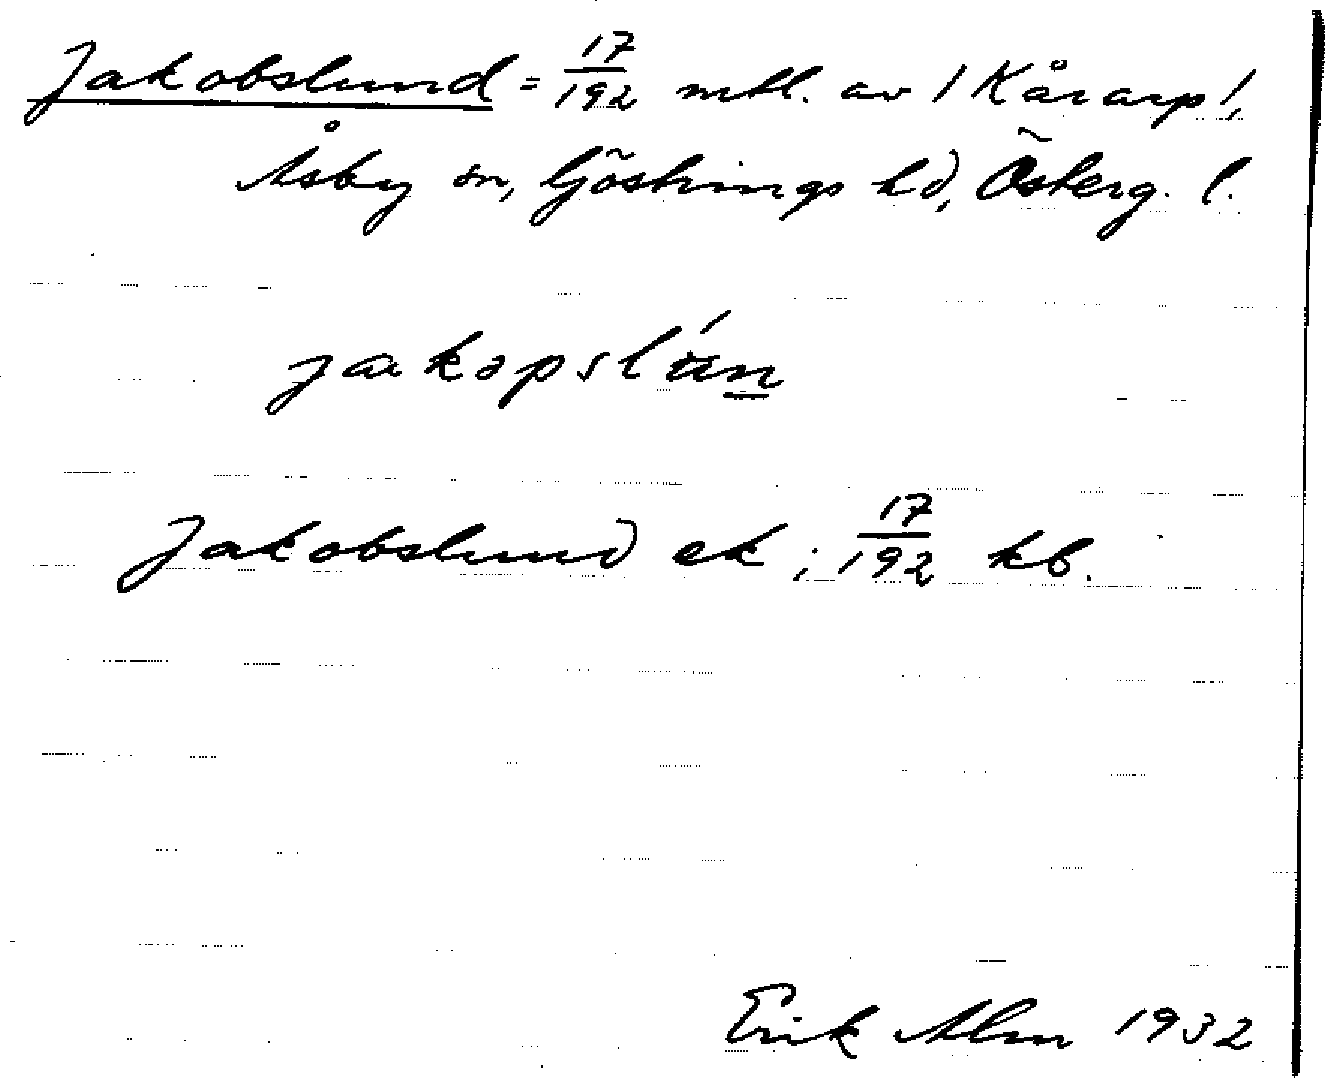 Jakobslund = 17/192 mtl. av /Kårarp/,
Åsby sn, Göstrings hd, Österg. l.
jakopslún
Jakobslund ek; 17/192 kb.
Erik Alm 1932